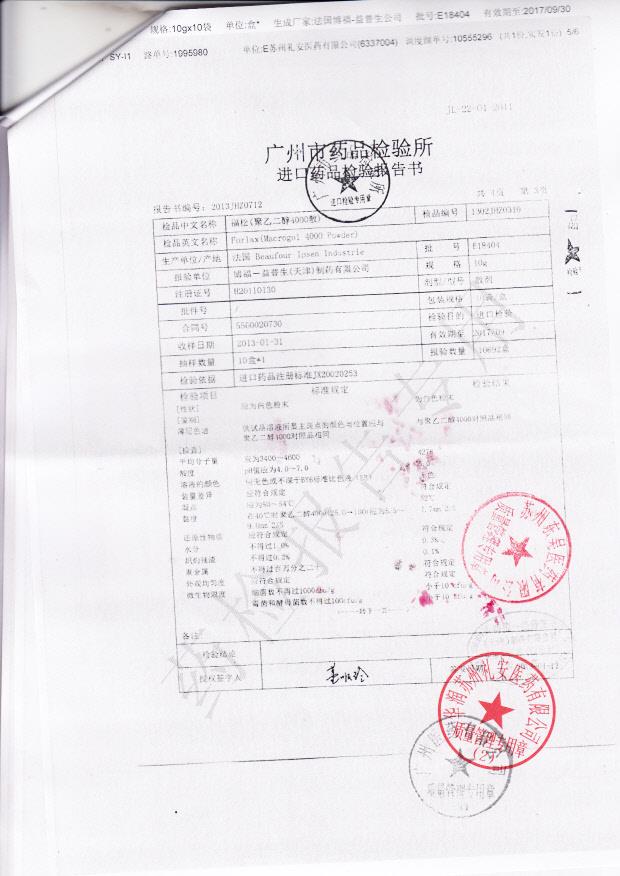 规格:10gx10袋 单位:盒* 生成厂家:法国博福-益普生公司 批号:E18404 有效期至:2017/09/30
SY-I1 单号:1995980 单位:E苏州礼安医药有限公司(6337004) 调度细单号:10555296 5/6
JL-22-01-2011
广州市药品检验所
进口药品检验报告书
报告书编号: 2013JHZ0712
检品中文名称 福松(聚乙二醇4000散) 检品编号
检品英文名称 Forlax(Macrogol 4000 Powder)
生产单位/产地 法国 Beaufour Ipsen Industrie 批 号 E18404
报验单位 博福-益普生(天津)制药有限公司 规 格 10g
注册证号 H20110130 剂型/型号 散剂
批件号 / 包装规格
合同号 5500020730 检验目的 进口检验
收样日期 2013-01-31 有效期至 2017-09
抽样数量 10盒*1 报验数量
检验依据 进口药品注册标准JX20020253
检验项目 标准规定 检验结果
[性状] 应为白色粉末 为白色粉末
[鉴别]
薄层色谱 供试品溶液所显主斑点的颜色与位置应与
聚乙二醇4000对照品相同
[检查]
平均分子量 应为3400~4600
酸度 pH值应为4.0~7.0
溶液的颜色
装量差异 应符合规定 符合规定
凝点
黏度
还原性物质 应符合规定 符合规定
水分 不得过1.0% 0.3%
炽灼残渣 不得过0.2% 0.1%
重金属 不得过百万分之二十 符合规定
外观均匀度 应符合规定 符合规定
微生物限度 细菌数不得过1000cfu/g 小于10cfu/g
霉菌和酵母菌数不得过100cfu/g 小于10cfu/g
备注
检验结论
授权签字人
进口检验专用章
苏州东吴医药有限公司
华润苏州礼安医药有限公司
质量管理专用章
(2)
质量管理专用章
药检报告专用